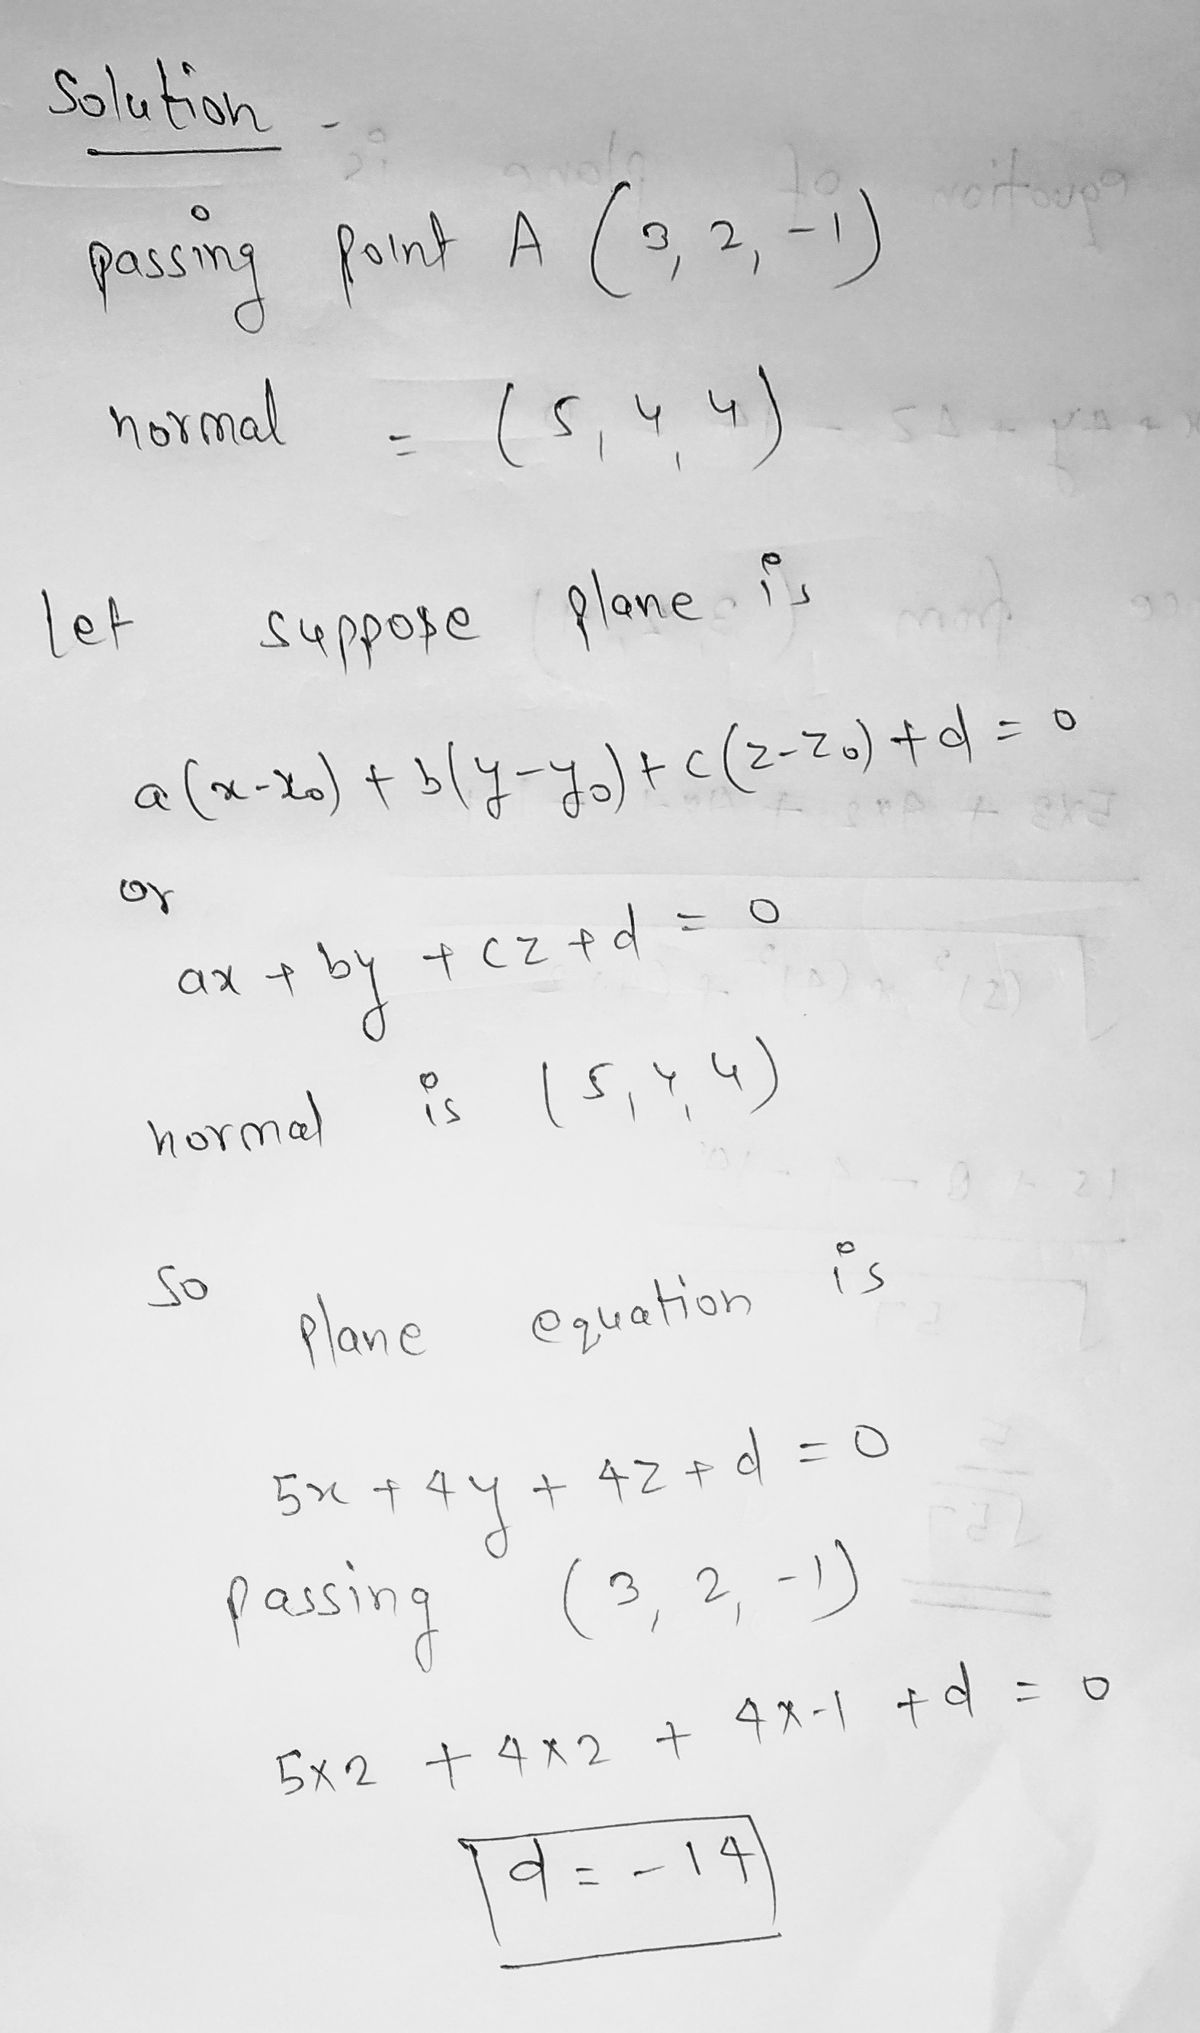 Solution -
passing point A (3, 2, -1)
normal = (5, 4, 4)
Let suppose plane is
a(x-x₀) + b(y-y₀) + c(z-z₀) + d = 0
or
ax + by + cz + d = 0
normal is (5, 4, 4)
so plane equation is
5x + 4y + 4z + d = 0
passing (3, 2, -1)
5x2 + 4x2 + 4x-1 + d = 0
d = -14